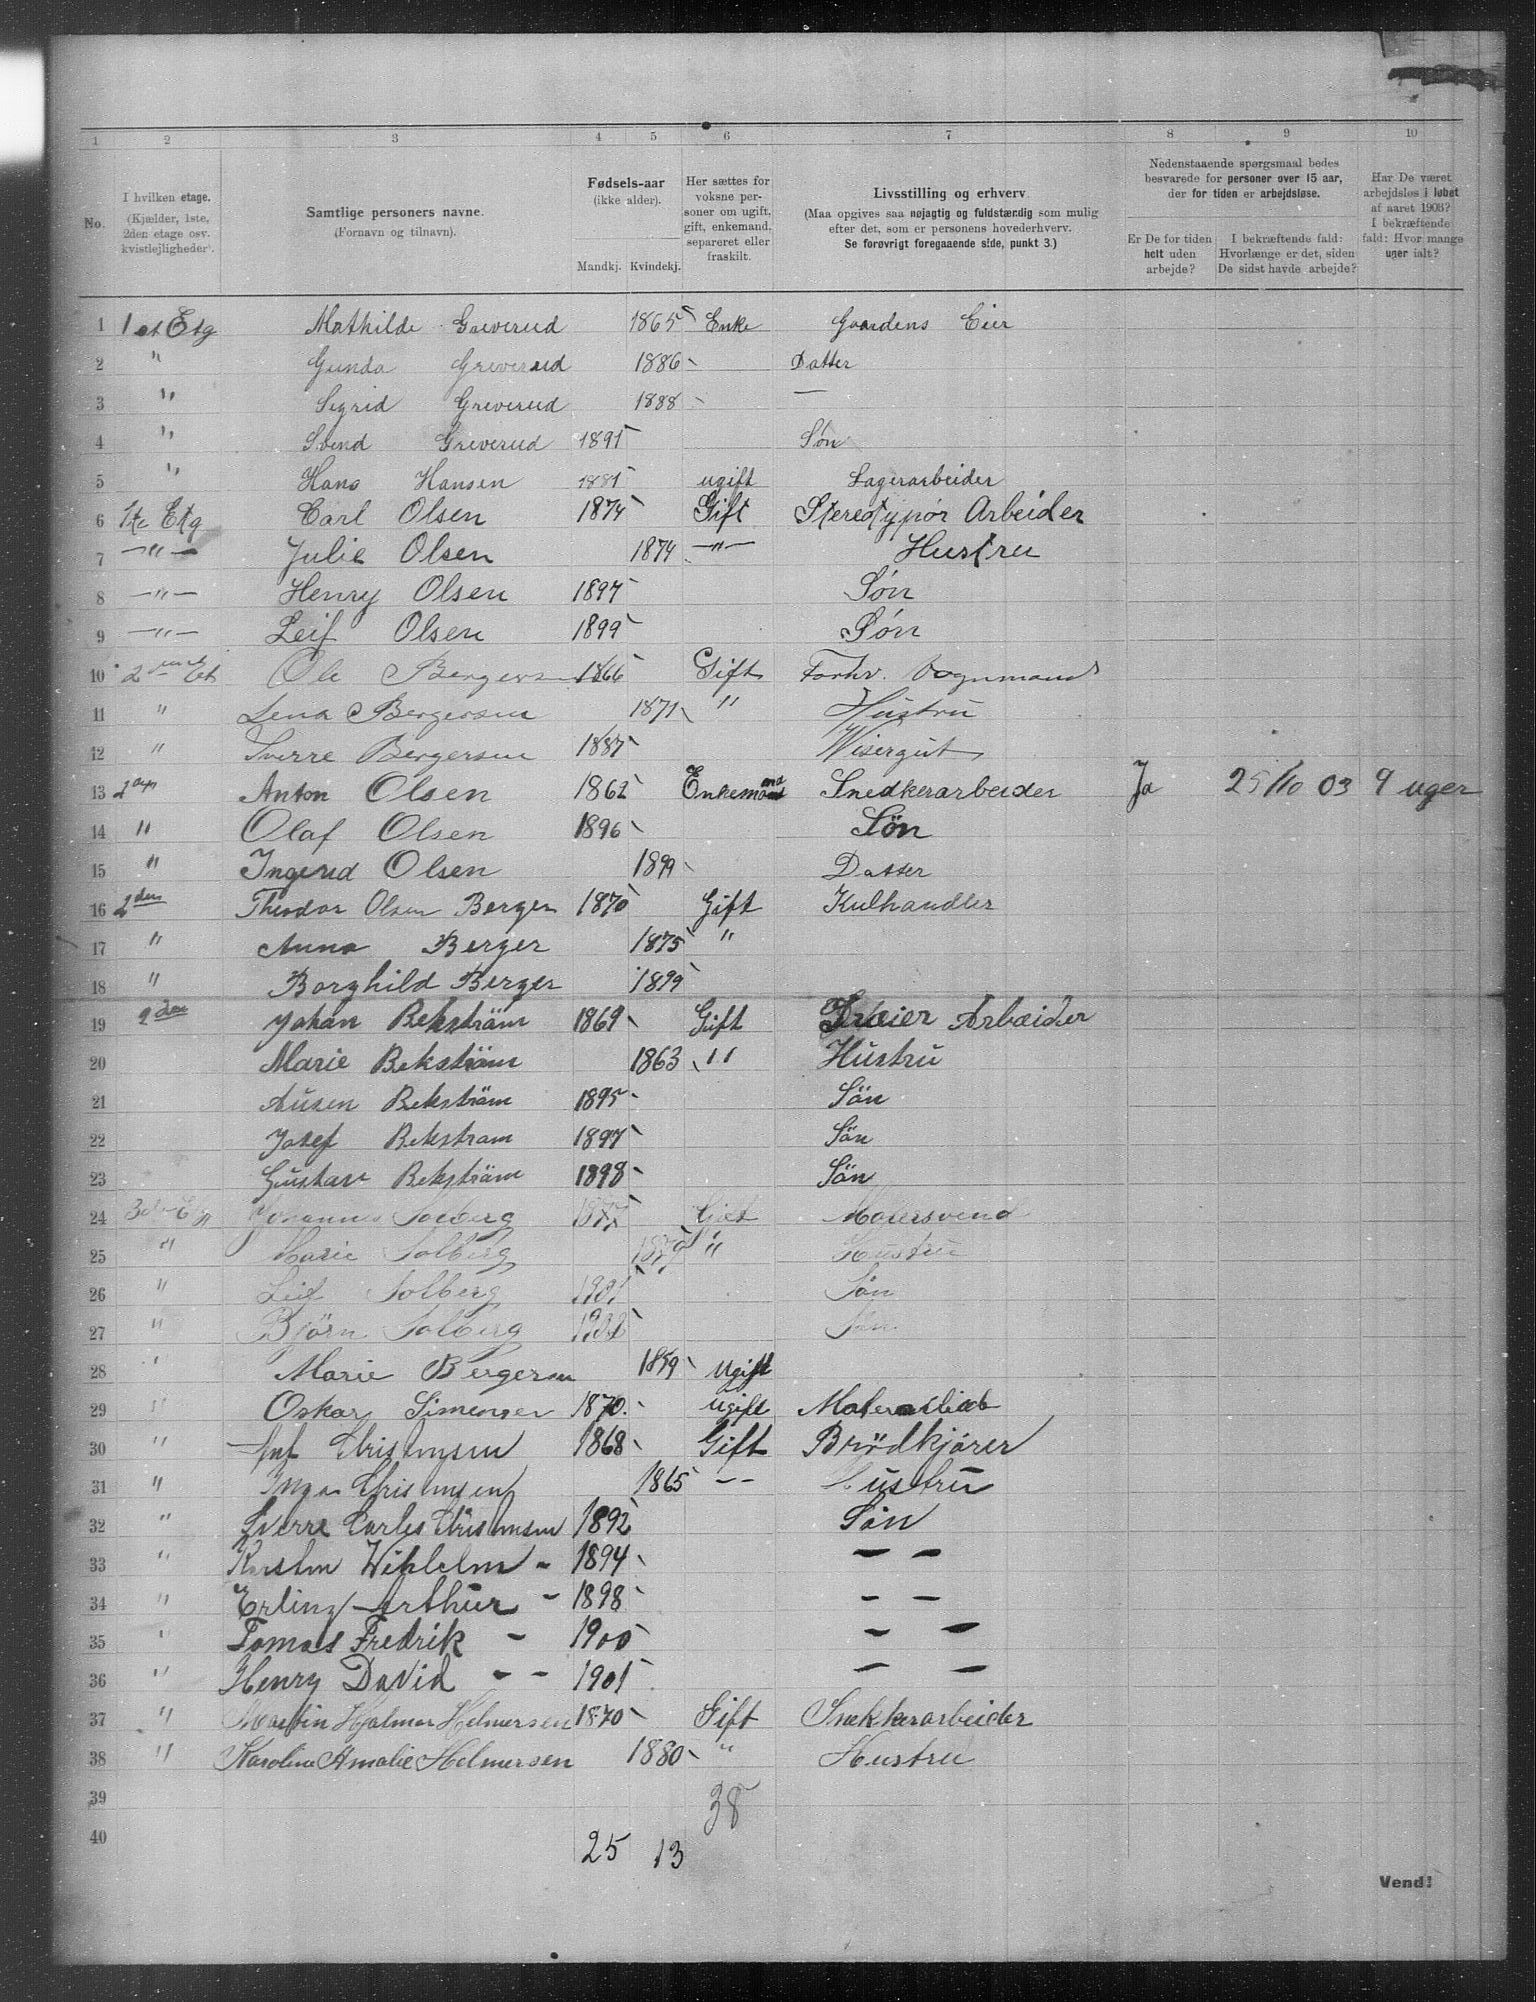 1 2 3 4 5 6 7 8 9 10
No.
I hvilken etage.
(Kjælder, 1ste, 2den etage osv. kvistlejligheder).
Samtlige personers navne.
(Fornavn og tilnavn).
Fødsels-aar
(ikke alder).
Mandkj. Kvindekj.
Her sættes for voksne personer om ugift, gift, enkemand, separeret eller fraskilt.
Livsstilling og erhverv.
(Maa opgives saa nøjagtig og fuldstændig som mulig efter det, som er personens hovederhverv.
Se forøvrigt foregaaende side, punkt 3.)
Nedenstaaende spørgsmaal bedes besvarede for personer over 15 aar, der for tiden er arbejdsløse.
Er De for tiden helt uden arbejde?
I bekræftende fald: Hvorlænge er det, siden De sidst havde arbejde?
Har De været arbejdsløs i løbet af aaret 1903? I bekræftende fald: Hvor mange uger ialt?
1 1st Etg Mathilde Greverud 1865 Enke Gaardens Eier
2 " Gunda Greverud 1886 Datter
3 " Sigrid Greverud 1888 —
4 " Svend Greverud 1891 Søn
5 " Hans Hansen 1881 ugift Lagerarbeider
6 1te Etg Carl Olsen 1874 Gift Stereotypør Arbeider
7 —"— Julie Olsen 1874 —"— Hustru
8 —"— Henry Olsen 1897 Søn
9 —"— Leif Olsen 1899 Søn
10 2 Et Ole Bergersen 1866 Gift Forhv. Vognmand
11 " Lena Bergersen 1871 " Hustru
12 " Sverre Bergersen 1887 Visergut
13 2 Anton Olsen 1862 Enkemand Snedkerarbeider Ja 25/10 03 9 uger
14 " Olaf Olsen 1896 Søn
15 " Ingerid Olsen 1899 Datter
16 2den Theodor Olsen Berger 1870 Gift Kulhandler
17 " Anna Berger 1875 "
18 " Borghild Berger 1899
19 2den Johan Bekström 1869 Gift Arbeider
20 Marie Bekström 1863 " Hustru
21 Bekström 1895 Sön
22 Josef Bekstram 1897 Sön
23 Gustav Bekström 1898 Sön
24 Johannes Solberg 1877 Gift Malersvend
25 " Marie Solberg 1879 " Hustru
26 " Leif Solberg 1901 Søn
27 " Bjørn Solberg Søn
28 " Marie Bergersen 1859 Ugift
29 " Oskar Simensen 1870 ugift
30 " Christensen 1868 Gift Brødkjører
31 " Inga Christensen 1865 — — Hustru
32 " Sverre Carles Christensen 1892 Søn
33 " Karsten Wihlelm - 1894 — —
34 " Erling Arthur - 1898 — —
35 " Tomas Fredrik - 1900 — —
36 " Henry David - - 1901 — —
37 " Martin Hjalmar Helmersen 1870 Gift Snekkerarbeider
38 " Karoline Amalie Helmersen 1880 " Hustru
39 38
40 25 13
Vend!